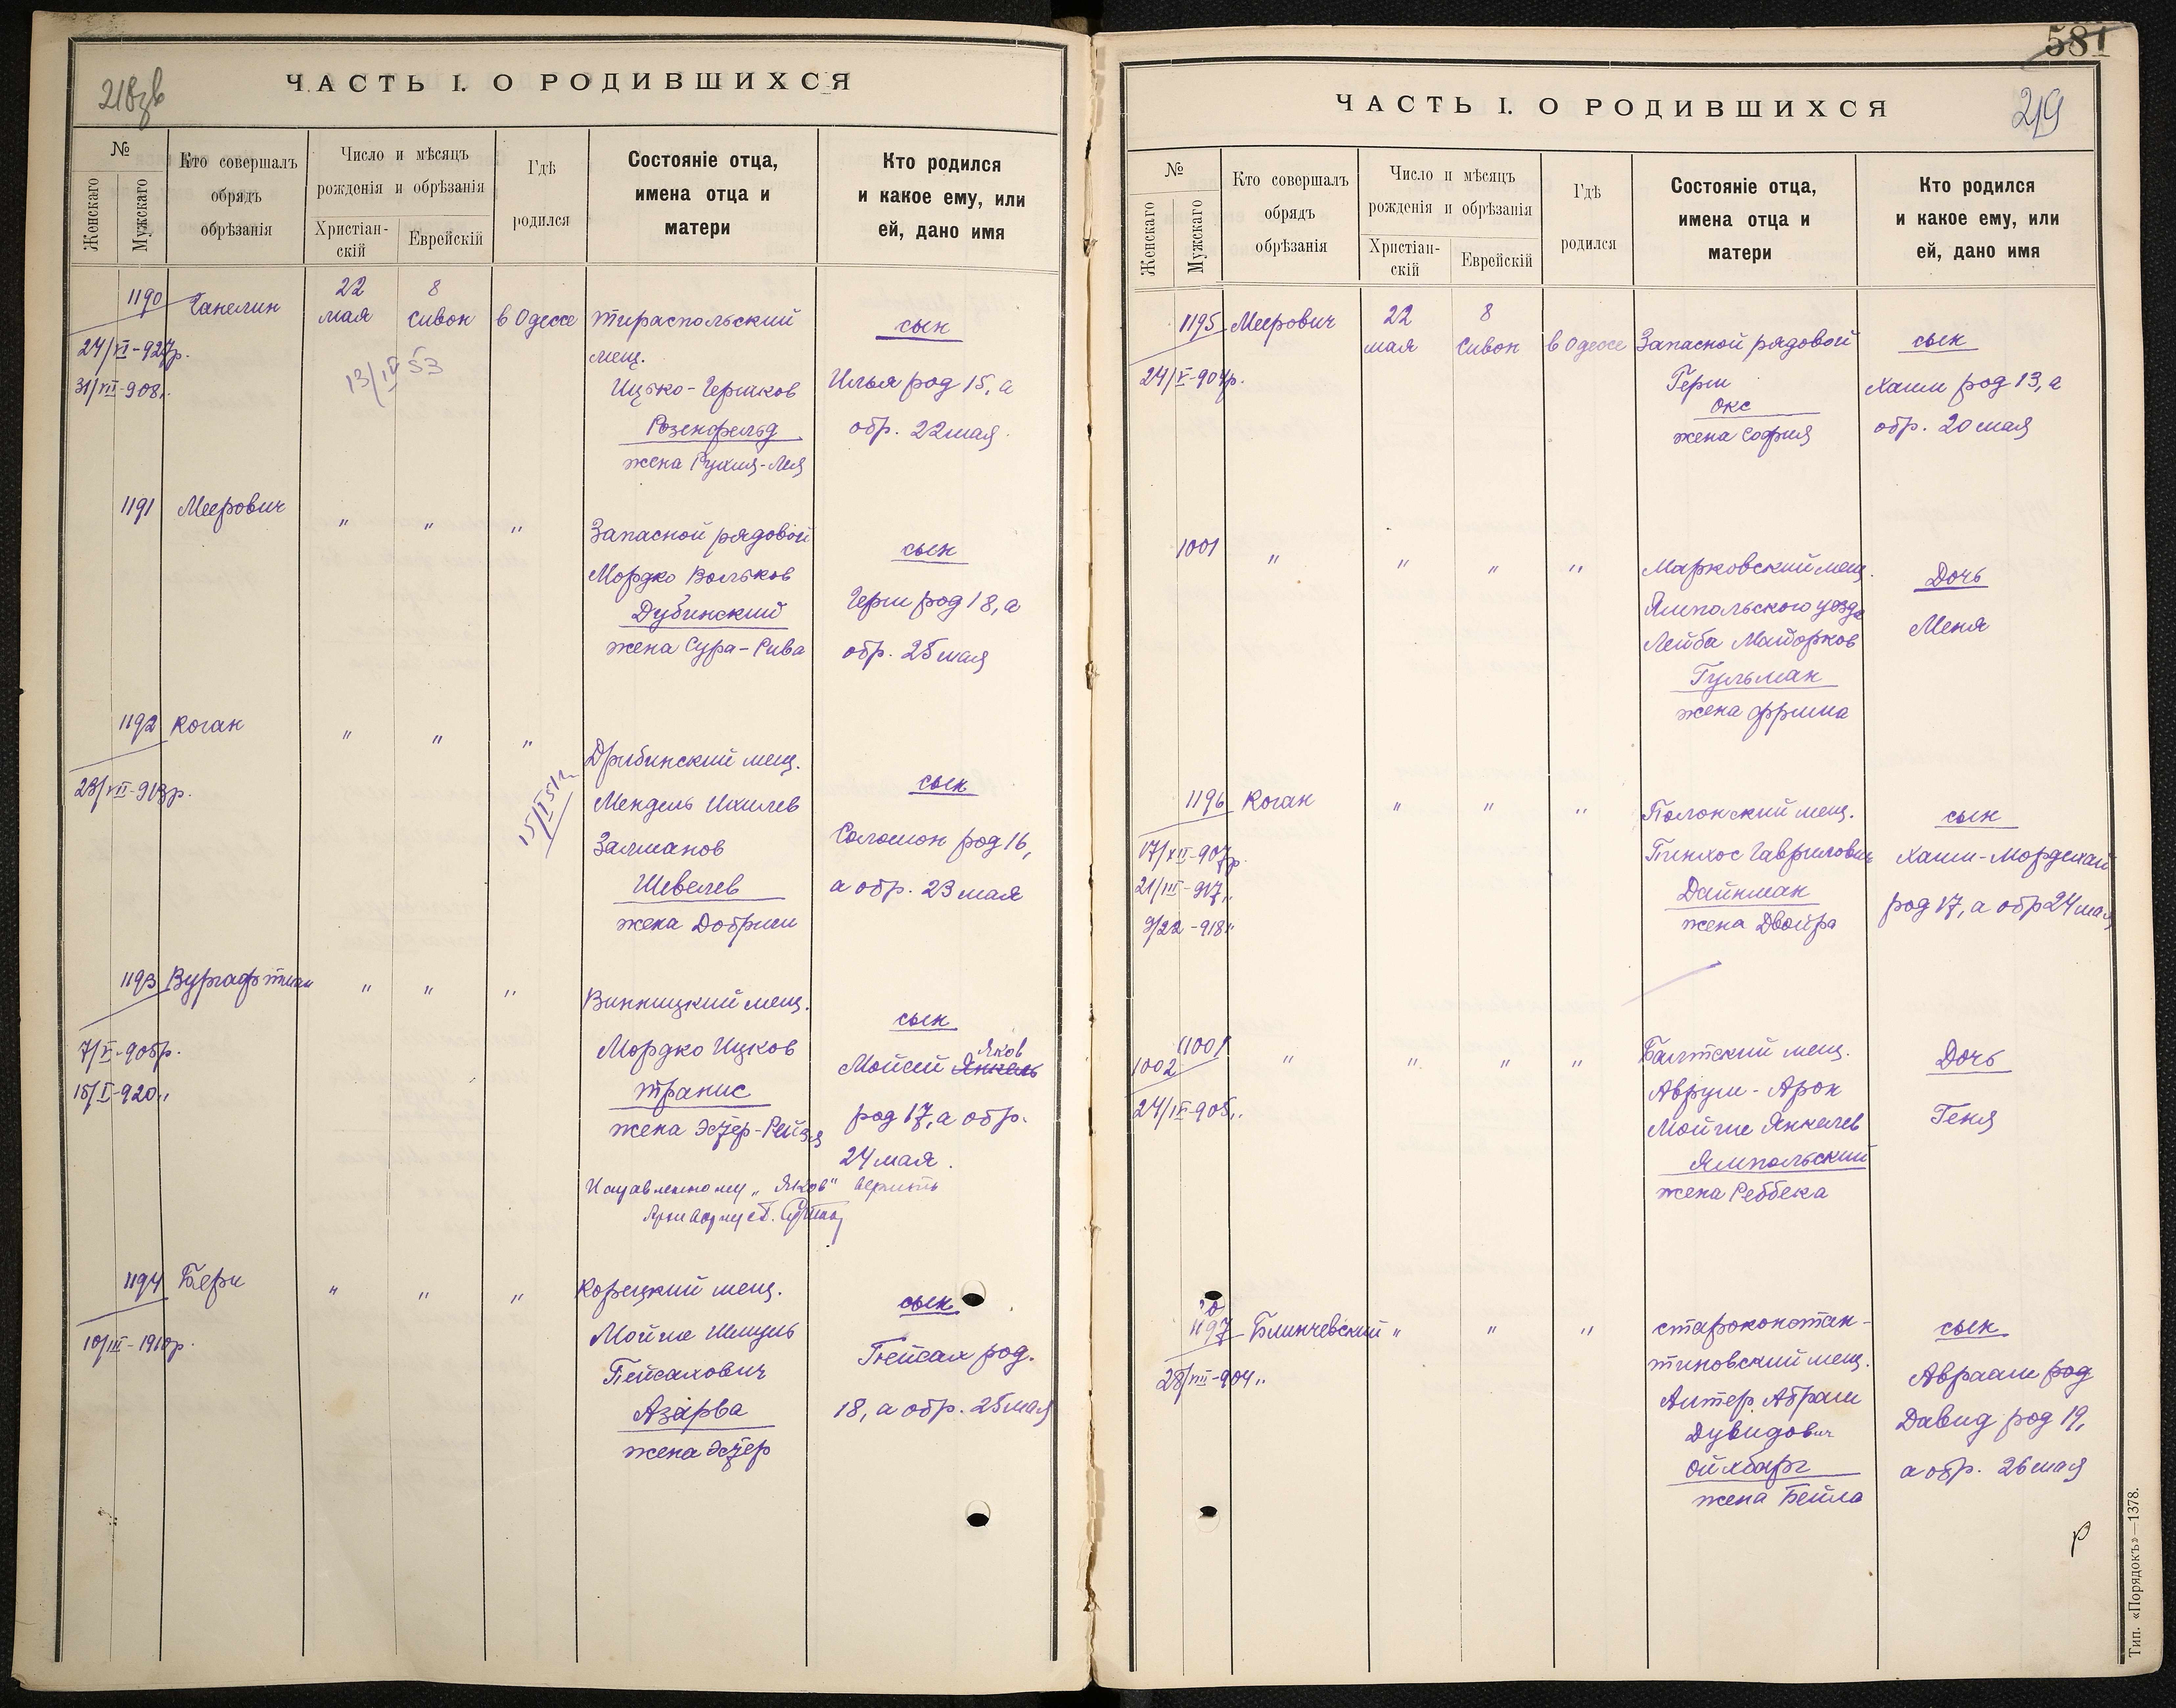 ЧАСТЬ I. О РОДИВШИХСЯ
№
Женскаго
Мужскаго
Кто совершалъ
обрядъ
обрѣзанія
Число и мѣсяцъ
рожденія и обрѣзанія
Христіан-
скій
Еврейскій
Гдѣ
родился
Состояніе отца,
имена отца и
матери
Кто родился
и какое ему, или
ей, дано имя
1190
Ганелин
22
мая
8
Сивон
в Одессе
Тираспольский
мещ.
Ицько-Гершков
Розенфельд
жена Рухля-Лея
сын
Илья род 15, а
обр. 22 мая.
24/VI-927р.
31/VII-908"
13/IV 53
1191
Меерович
"
"
"
Запасной рядовой
Мордко Вольков
Дубинский
жена Сура-Рива
сын
Герш род 18, а
обр. 25 мая
1192
Коган
"
"
"
Дрибинский мещ.
Мендель Ихилев
Залманов
Шевелев
жена Добриш
сын
Соломон род 16,
а обр. 23 мая
23/VII-913р.
1193
Вургафтман
"
"
"
Винницкий мещ.
Мордко Ицков
Транис
жена Эстер-Рейзя
сын
Яков
Мойсей Янкель
род 17, а обр.
24 мая.
7/V-905р.
15/I-920"
"Яков" верить
1194
Берш
"
"
"
Корецкий мещ.
Мойше Шмуль
Пейсахович
Азарва
жена Эстер
сын
Пейсах род.
18, а обр. 25 мая
10/III-1910р.
581
ЧАСТЬ I. О РОДИВШИХСЯ
219
№
Женскаго
Мужскаго
Кто совершалъ
обрядъ
обрѣзанія
Число и мѣсяцъ
рожденія и обрѣзанія
Христіан-
скій
Еврейскій
Гдѣ
родился
Состояніе отца,
имена отца и
матери
Кто родился
и какое ему, или
ей, дано имя
1195
Меерович
22
мая
8
Сивон
в Одессе
Запасной рядовой
Герш
Окс
жена София
сын
Хаим род 13, а
обр. 20 мая
24/V-904р.
1001
"
"
"
"
Марковский мещ.
Ямпольского уезда
Лейба Майорков
Гульман
жена Фрима
Дочь
Меня
1196
Коган
"
"
"
Полонский мещ.
Пинхос Гаврилович
Дайнман
жена Двойра
сын
Хаим-Мордехай
род 17, а обр 24 мая
17/XII-907р.
21/III-917"
9/22-918"
1001
1002
"
"
"
"
Балтский мещ.
Аврум-Арон
Мойше Янкелев
Ямпольский
жена Реббека
Дочь
Геня
24/IX-905"
1197
Блинчевский
"
"
"
Староконстан-
тиновский мещ.
Антер Абрам
Дувидович
Ойхбарг
жена Бейла
сын
Авраам род
Давид род 19,
а обр. 26 мая
28/VII-904"
Тип. «Порядокъ»—1378.